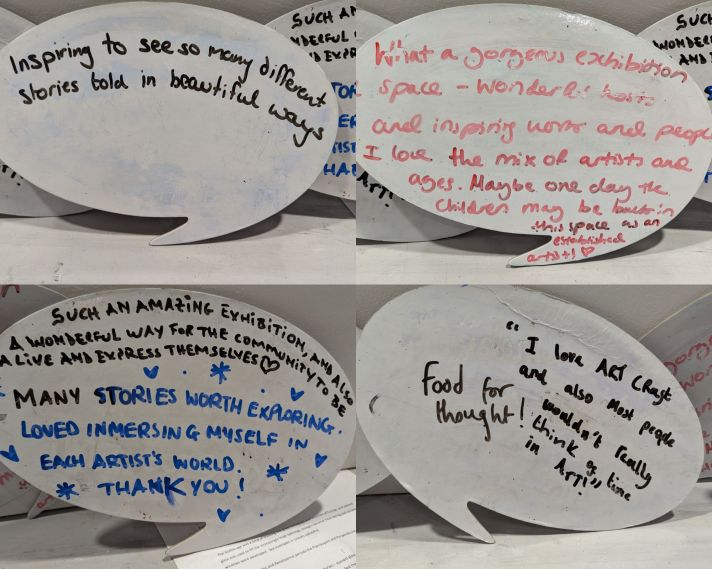 Inspiring to see so many different
stories told in beautiful ways
What a gorgeous exhibition
space - wonderful hosts
and inspiring work and people
I love the mix of artists and
ages. Maybe one day the
children may be back in
this space as an
established
artist! ♡
SUCH AN AMAZING EXHIBITION,
A WONDERFUL WAY FOR THE COMMUNITY TO BE
ALIVE AND EXPRESS THEMSELVES ♡ AND ALSO
MANY STORIES WORTH EXPLORING.
LOVED INMERSING MYSELF IN
EACH ARTIST'S WORLD.
THANK YOU!
Food for
thought!
"I love ART
and also most people
wouldn't really
think of time
in Art!"